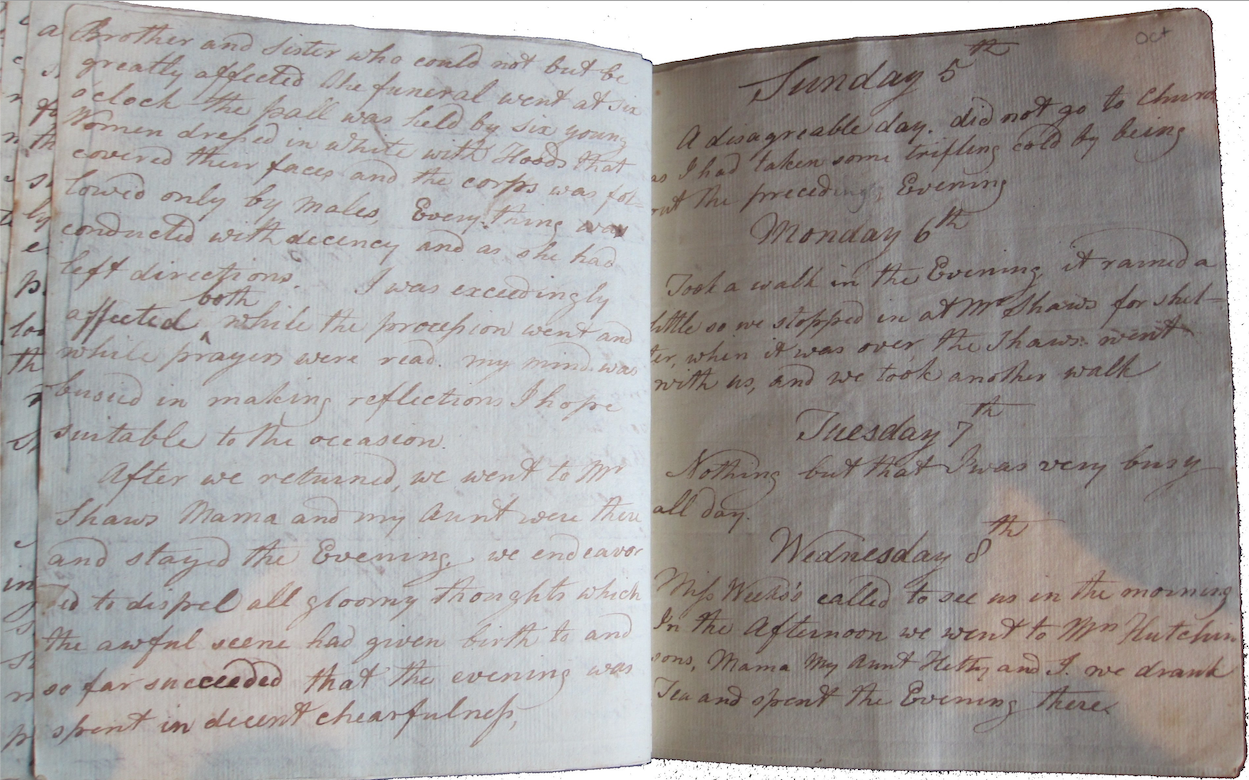 Brother and Sister who could not but be
greatly affected the funeral went at six
oclock the pall was held by six young
Women dressed in white with Hoods that
covered their faces and the corps was fol-
lowed only by males, Every thing was
conducted with decency and as she had
left directions. I was exceedingly
both
affected while the procession went and
while prayers were read. my mind was
busied in making reflections I hope
suitable to the occasion.
After we returned, we went to Mr
Shaws Mama and my Aunt were there
and stayed the Evening, we endeavor
ed to dispel all gloomy thoughts which
the awful scene had given birth to and
so far succeeded that the evening was
spent in decent chearfulness,
Oct
Sunday 5th
A disagreable day. did not go to Church
as I had taken some trifling cold by being
out the preceding Evening
Monday 6th
Took a walk in the Evening it rained a
little so we stopped in at Mr Shaws for shel-
ter, when it was over, the Shaws went
with us, and we took another walk
Tuesday 7th
Nothing but that I was very busy
all day.
Wednesday 8th
Miss called to see us in the morning
In the Afternoon we went to Mrs Hutchin
sons, Mama My Aunt Hetty and I. we drank
Tea and spent the Evening there.